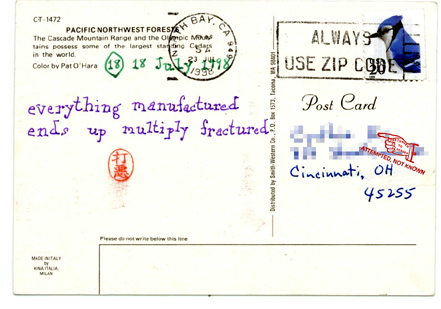 CT-1472
PACIFIC NORTHWEST FORESTS
The Cascade Mountain Range and the Olympic Moun
tains possess some of the largest standing Cedars
in the world.
Color by Pat O'Hara
18 18 July 1998
NORTH BAY, CA
949
1998
ALWAYS
USE ZIP CODE
20
everything manufactured
ends up multiply fractured
Post Card
ATTEMPTED, NOT KNOWN
Cincinnati, OH
45255
Distributed by Smith-Western Co., P.O. Box 1573, Tacoma, WA 98401
Please do not write below this line
MADE IN ITALY
by
KINA ITALIA,
MILAN